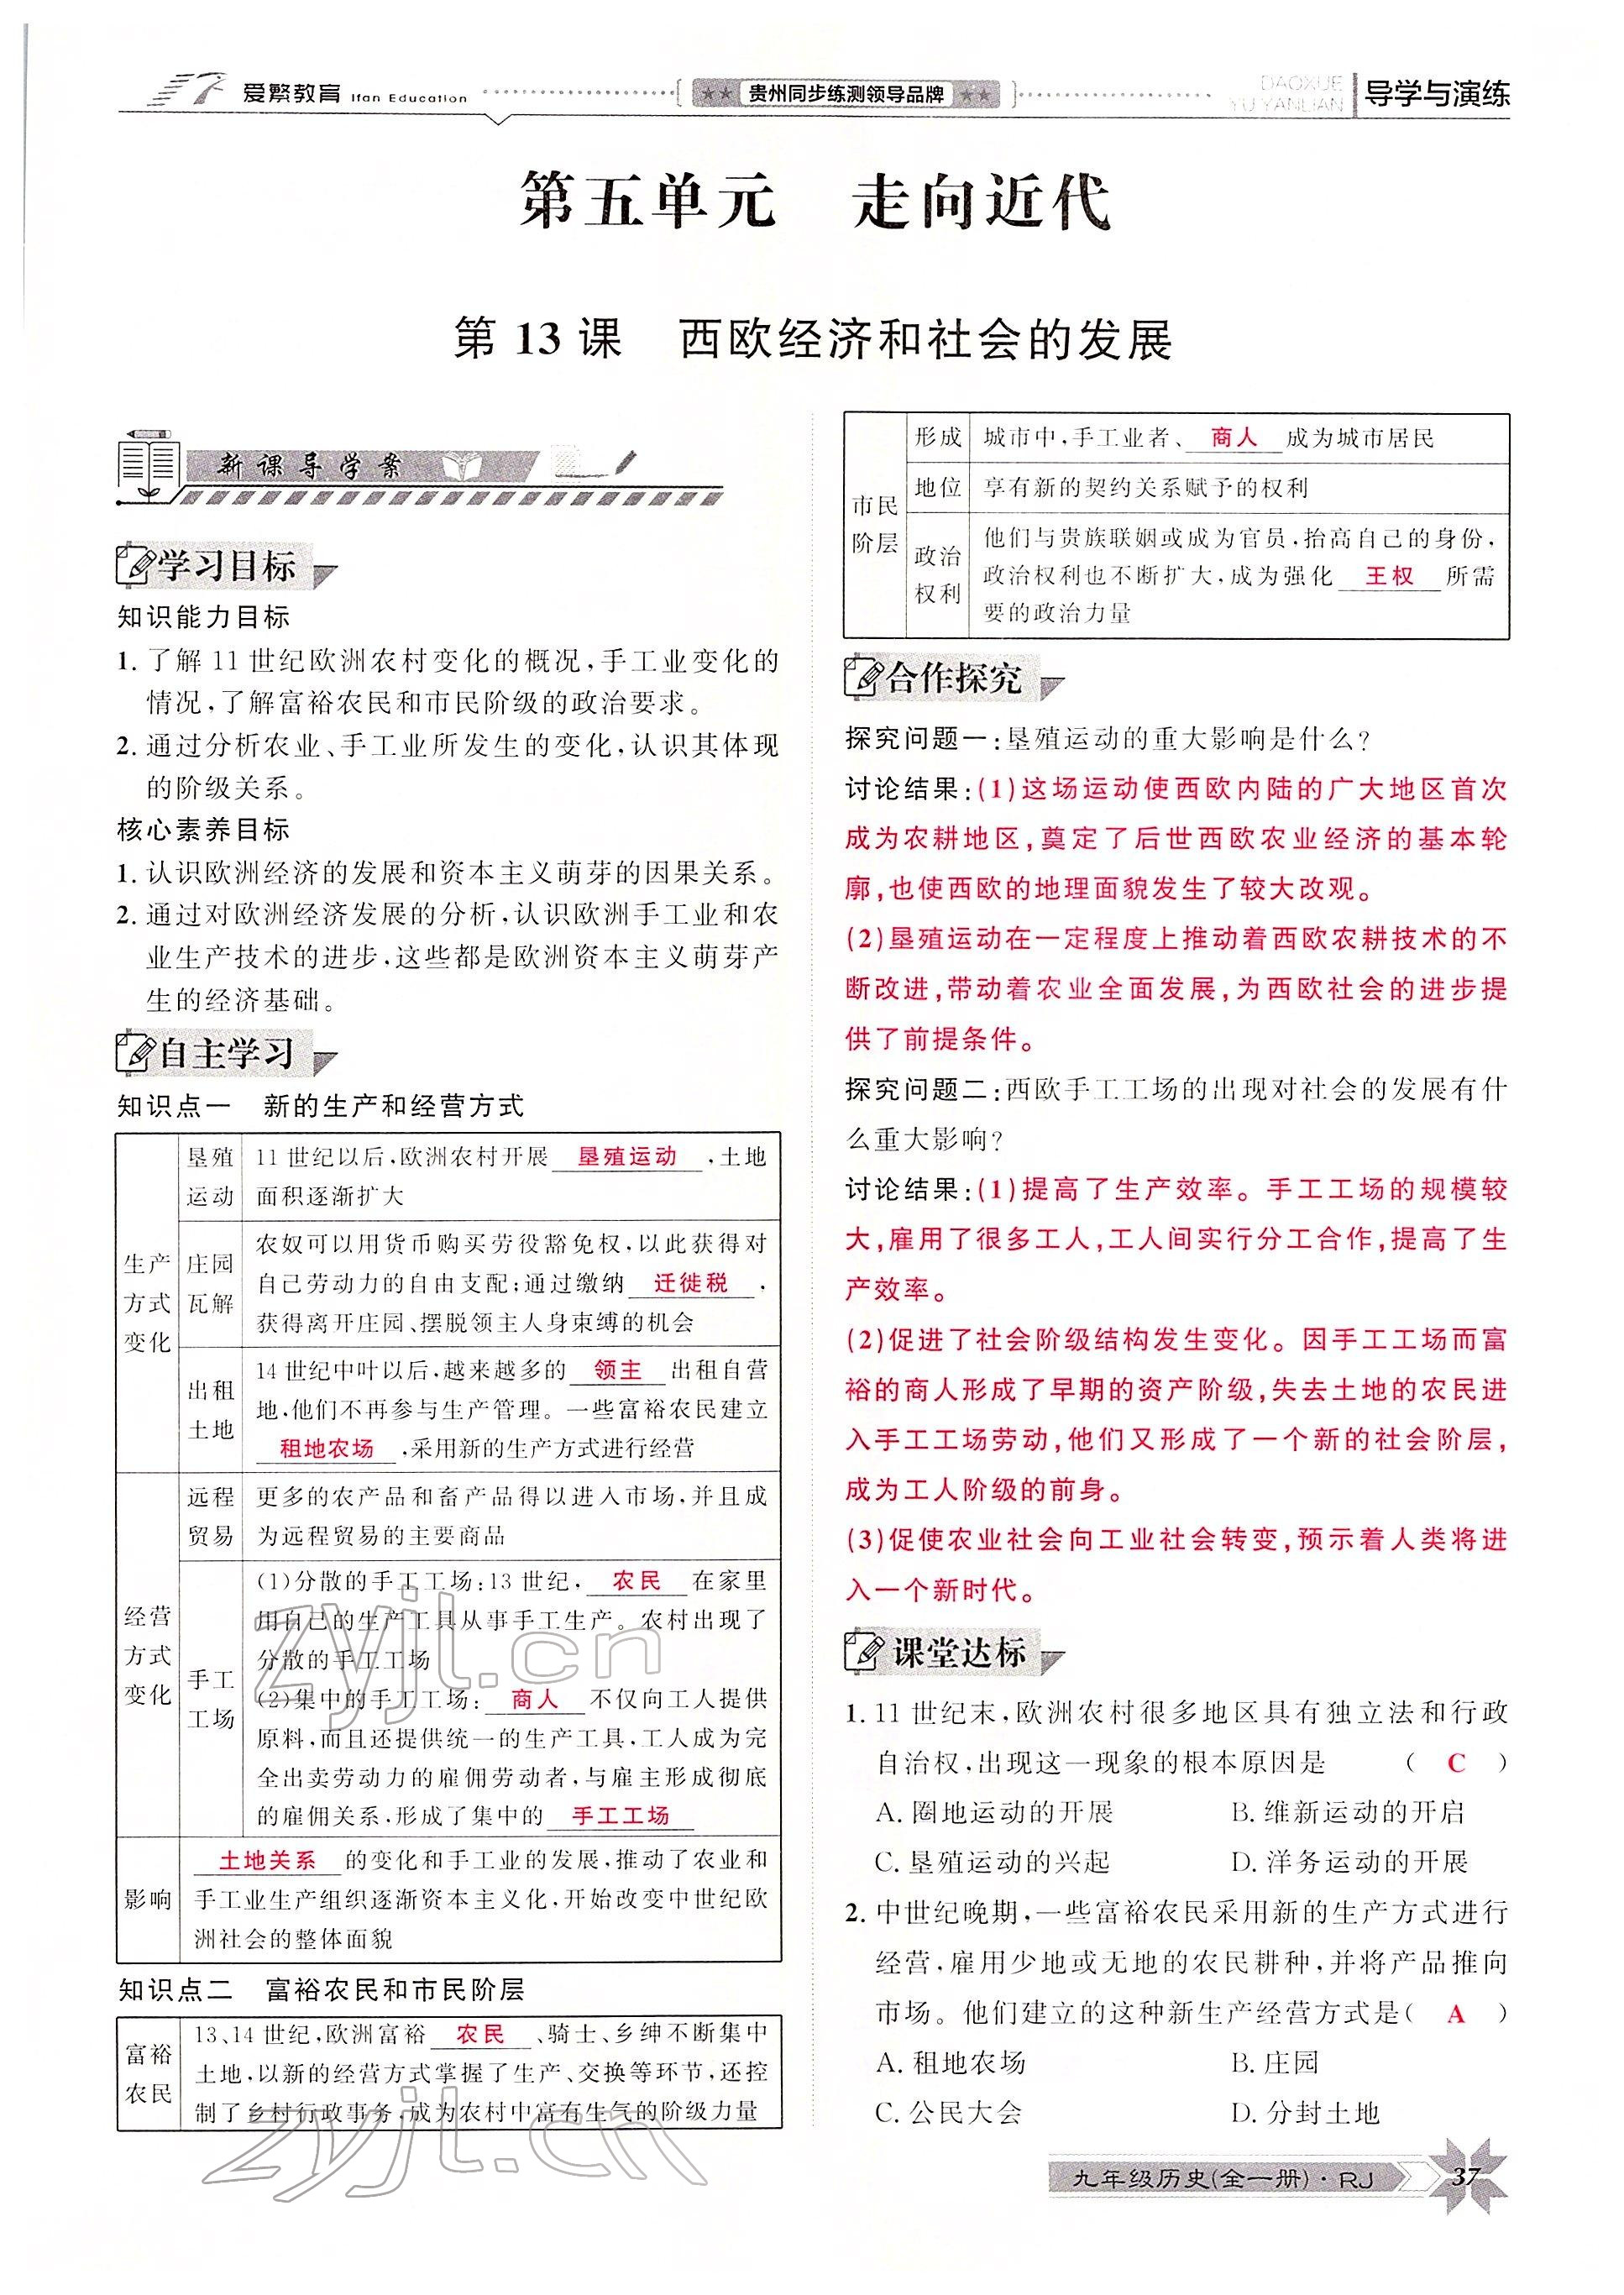 爱繁教育 Ifan Education
★★ 贵州同步练测领导品牌 ★★
DAOXUE
YU YANLIAN
导学与演练
第五单元 走向近代
第 13 课 西欧经济和社会的发展
新课导学案
学习目标
知识能力目标
1. 了解 11 世纪欧洲农村变化的概况,手工业变化的
情况,了解富裕农民和市民阶级的政治要求。
2. 通过分析农业、手工业所发生的变化,认识其体现
的阶级关系。
核心素养目标
1. 认识欧洲经济的发展和资本主义萌芽的因果关系。
2. 通过对欧洲经济发展的分析,认识欧洲手工业和农
业生产技术的进步,这些都是欧洲资本主义萌芽产
生的经济基础。
自主学习
知识点一 新的生产和经营方式
生产
方式
变化
垦殖
运动
11 世纪以后,欧洲农村开展 垦殖运动 ,土地
面积逐渐扩大
庄园
瓦解
农奴可以用货币购买劳役豁免权,以此获得对
自己劳动力的自由支配;通过缴纳 迁徙税 ,
获得离开庄园、摆脱领主人身束缚的机会
出租
土地
14 世纪中叶以后,越来越多的 领主 出租自营
地,他们不再参与生产管理。一些富裕农民建立
租地农场 ,采用新的生产方式进行经营
经营
方式
变化
远程
贸易
更多的农产品和畜产品得以进入市场,并且成
为远程贸易的主要商品
手工
工场
(1)分散的手工工场:13 世纪, 农民 在家里
用自己的生产工具从事手工生产。农村出现了
分散的手工工场
(2)集中的手工工场: 商人 不仅向工人提供
原料,而且还提供统一的生产工具,工人成为完
全出卖劳动力的雇佣劳动者,与雇主形成彻底
的雇佣关系,形成了集中的 手工工场
影响
土地关系 的变化和手工业的发展,推动了农业和
手工业生产组织逐渐资本主义化,开始改变中世纪欧
洲社会的整体面貌
知识点二 富裕农民和市民阶层
富裕
农民
13、14 世纪,欧洲富裕 农民 、骑士、乡绅不断集中
土地,以新的经营方式掌握了生产、交换等环节,还控
制了乡村行政事务,成为农村中富有生气的阶级力量
市民
阶层
形成
城市中,手工业者、 商人 成为城市居民
地位
享有新的契约关系赋予的权利
政治
权利
他们与贵族联姻或成为官员,抬高自己的身份,
政治权利也不断扩大,成为强化 王权 所需
要的政治力量
合作探究
探究问题一:垦殖运动的重大影响是什么?
讨论结果:(1)这场运动使西欧内陆的广大地区首次
成为农耕地区,奠定了后世西欧农业经济的基本轮
廓,也使西欧的地理面貌发生了较大改观。
(2)垦殖运动在一定程度上推动着西欧农耕技术的不
断改进,带动着农业全面发展,为西欧社会的进步提
供了前提条件。
探究问题二:西欧手工工场的出现对社会的发展有什
么重大影响?
讨论结果:(1)提高了生产效率。手工工场的规模较
大,雇用了很多工人,工人间实行分工合作,提高了生
产效率。
(2)促进了社会阶级结构发生变化。因手工工场而富
裕的商人形成了早期的资产阶级,失去土地的农民进
入手工工场劳动,他们又形成了一个新的社会阶层,
成为工人阶级的前身。
(3)促使农业社会向工业社会转变,预示着人类将进
入一个新时代。
课堂达标
1. 11 世纪末,欧洲农村很多地区具有独立法和行政
自治权,出现这一现象的根本原因是 ( C )
A. 圈地运动的开展 B. 维新运动的开启
C. 垦殖运动的兴起 D. 洋务运动的开展
2. 中世纪晚期,一些富裕农民采用新的生产方式进行
经营,雇用少地或无地的农民耕种,并将产品推向
市场。他们建立的这种新生产经营方式是( A )
A. 租地农场 B. 庄园
C. 公民大会 D. 分封土地
九年级历史(全一册)·RJ
37
zyjl.cn
zyjl.cn